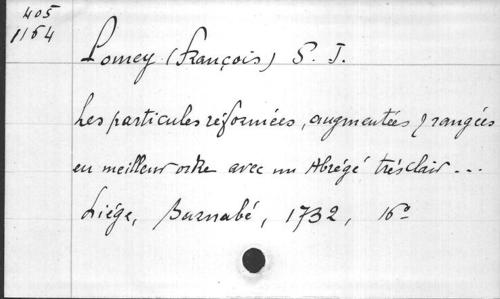 405
1164
Pomey (François) S. J.
Les particules réformées, augmentées & rangées
en meilleur ordre avec un Abrégé très clair ...
Liége, Barnabé, 1732, 16°